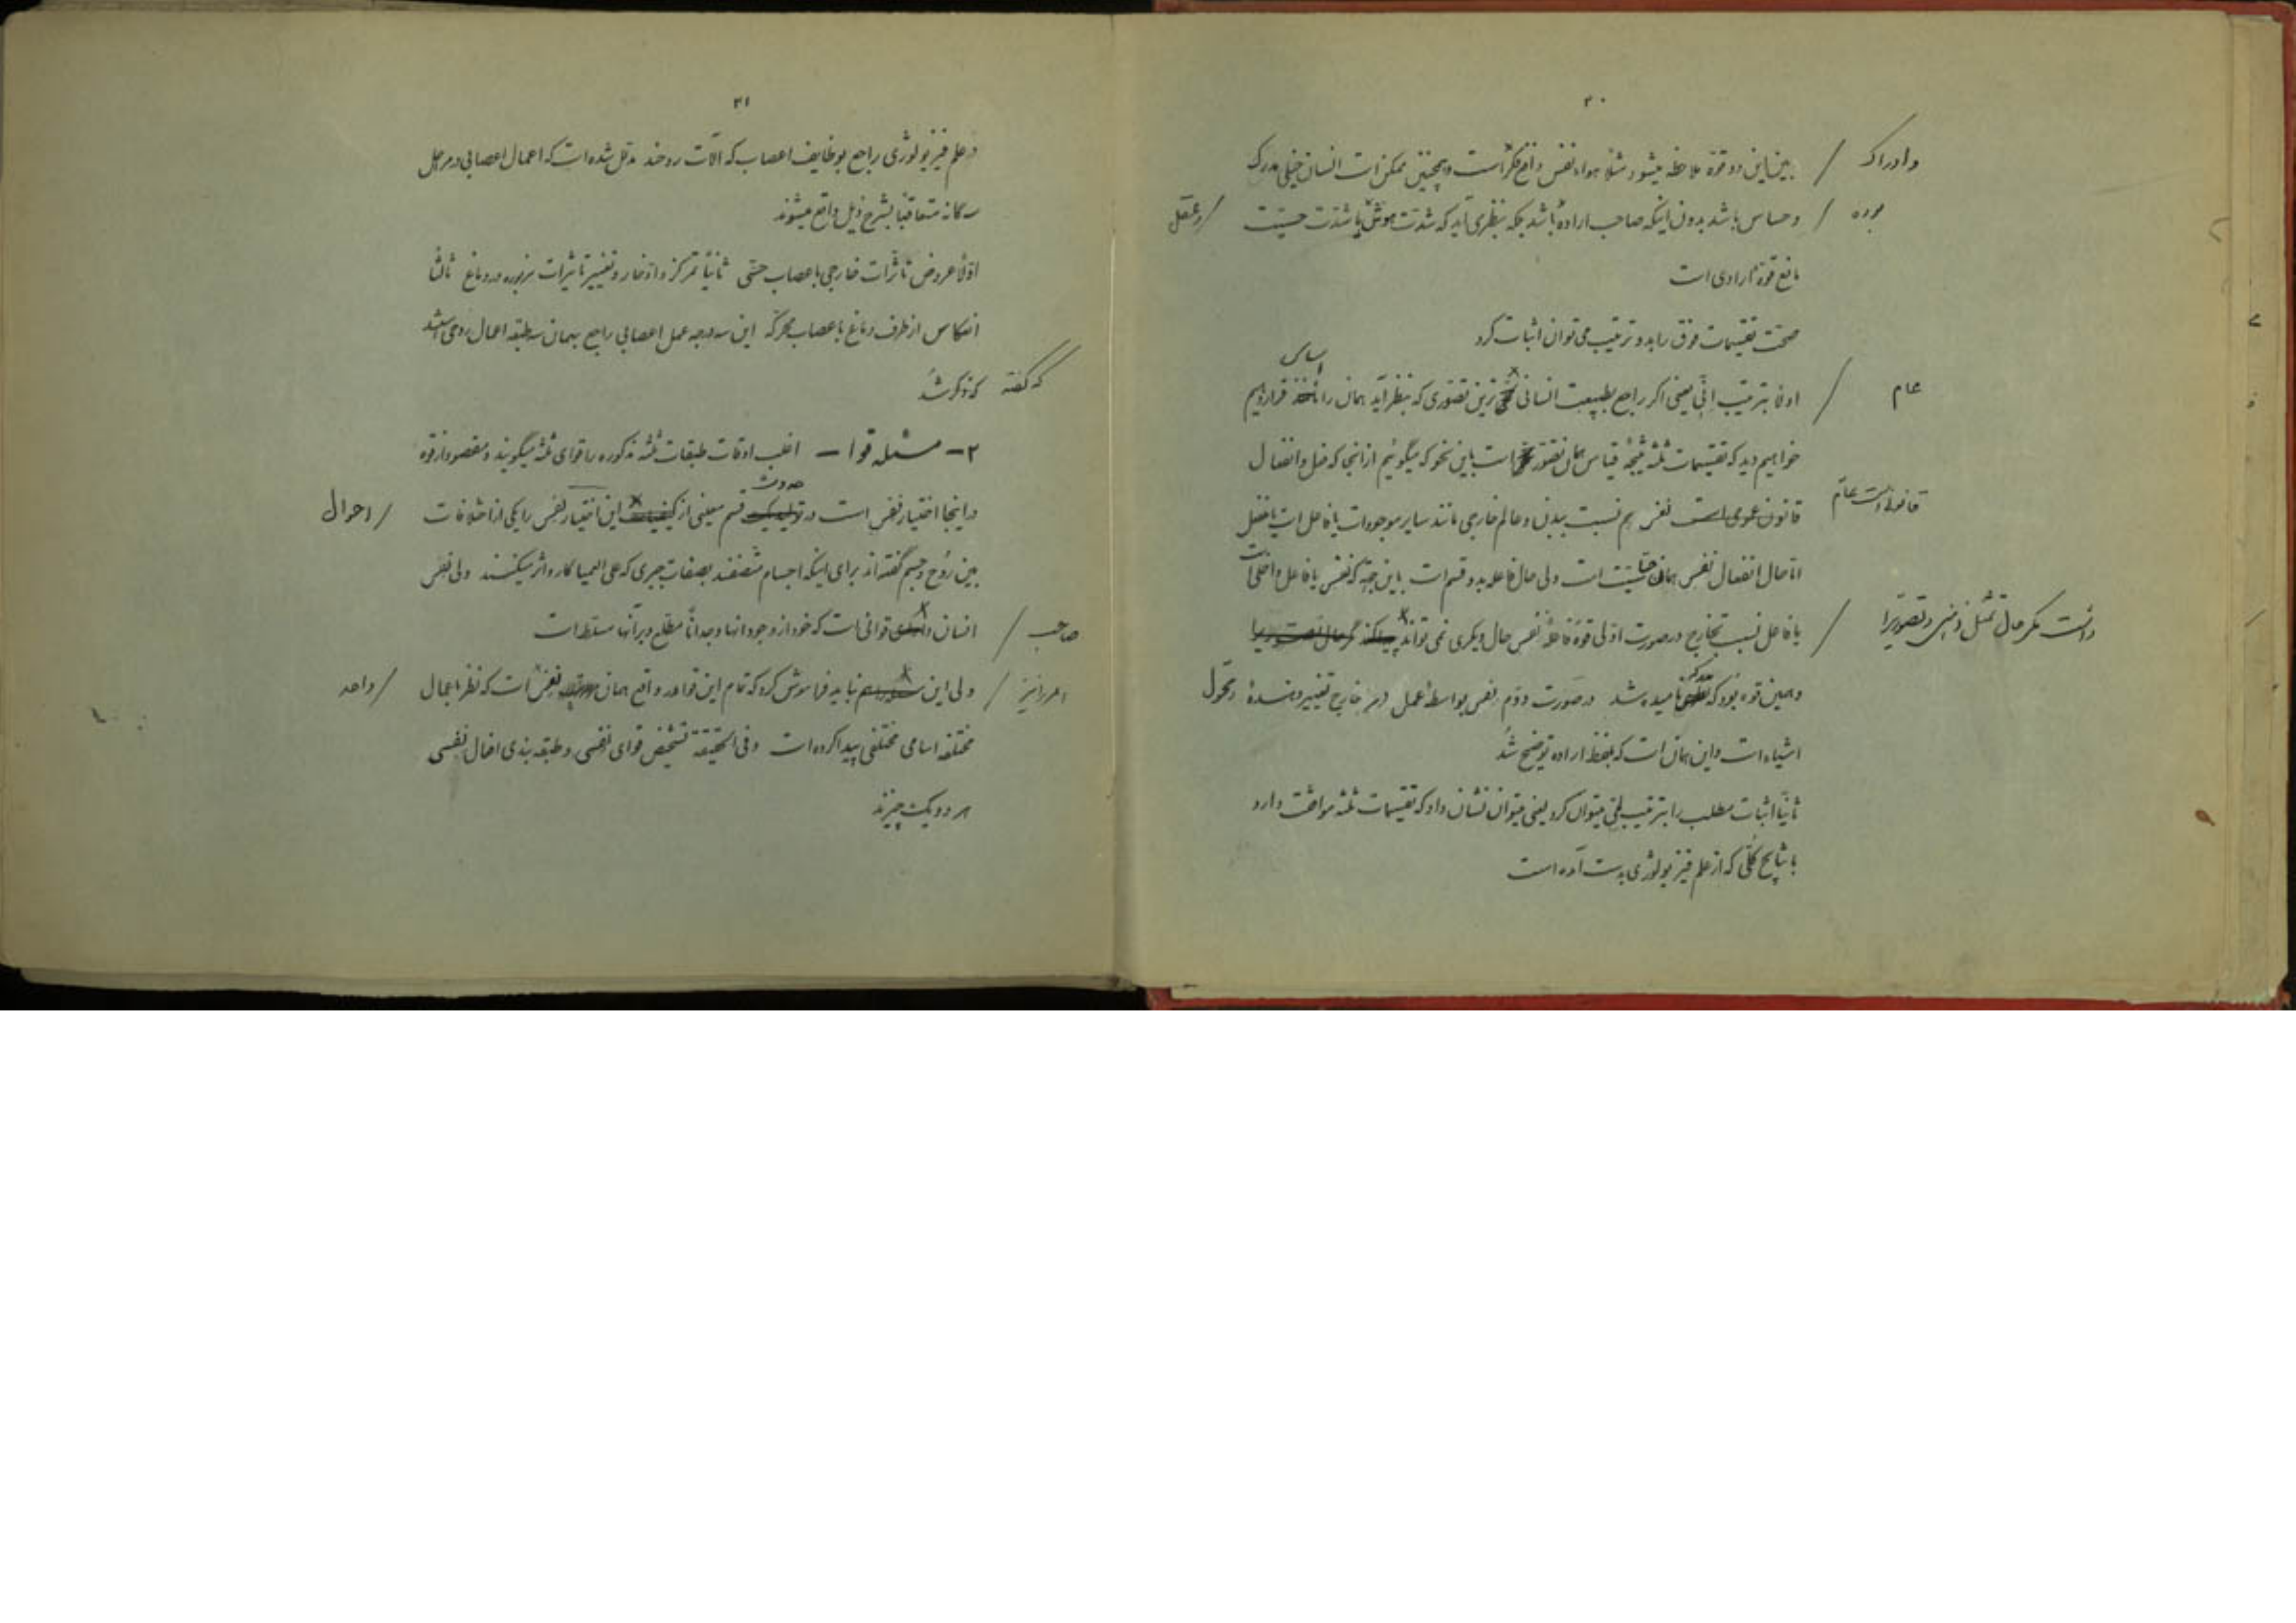 ۳۰
بین این دو قوه ملاحظه میشود مثلا هواء نفس دافع فکر است و همچنین ممکن است انسان خیلی مدرک
وادراک
و حساس باشد بدون اینکه صاحب اراده باشد بلکه بنظر می آید که شدت هوش یا شدت حسیت
بوده
وعقل
مانع قوهٔ ارادی است
صحت تقسیمات فوق را بدو ترتیب می توان اثبات کرد
اساس
اولا بترتیب انّی یعنی اگر راجع بطبیعت انسانی ترین تصوری که بنظر آید همان را قرار دهیم
عام
خواهیم دید که تقسیمات ثلثه نتیجه قیاس همان تصور است باین نحو که میگوئیم از آنجا که فعل و انفعال
قانون عمومی است نفس هم نسبت ببدن و عالم خارجی مانند سایر موجودات یا فاعل است یا منفعل
قانون است عام
اما حال انفعال نفس همان حسیت است ولی حال فاعله بدو قسم است باین جهة که نفس یا فاعل داخلی است
یا فاعل نسبت بخارج در صورت اولی قوهٔ فاعلهٔ نفس حال دیگری نمی تواند پیدا کند مگر حال تصور یرا
داشت مگر حال تمثل ذهنی و تصویرا
و همین قوه بود که مدرکه نامیده شد در صورت دوم نفس بواسطهٔ عمل در خارج تغییر دهندهٔ
و محول
اشیاء است و این همان است که بلفظ اراده توضیح شد
ثانیاً اثبات مطلب را بترتیب لمّی میتوان کرد یعنی میتوان نشان داد که تقسیمات ثلثه موافقت دارد
با نتایج کلی که از علم فیزیولوژی بدست آمده است
۳۱
در علم فیزیولوژی راجع بوظایف اعصاب که آلات روحند مدلل شده است که اعمال اعصابی در مراحل
سه گانه متعاقباً بشرح ذیل واقع میشوند
اولا عروض تأثرات خارجی باعصاب حسی ثانیاً تمرکز و ادخار و تغییر تأثیرات مزبوره در دماغ ثالثاً
انعکاس از طرف دماغ باعصاب محرکه این سه درجه عمل اعصابی راجع بهمان سه طبقه اعمال روحی است
که گفته
که ذکر شد
۲ - مسئله قوا - اغلب اوقات طبقات ثلثه مذکوره را قوای ثلثه میگویند و مقصود از قوه
حدوث
در اینجا اختیار نفس است در تولید یک قسم معینی از کیفیات این اختیار نفس را یکی از اختلافات
احوال
بین روح و جسم گفته اند برای اینکه اجسام متصفند بصفات جبری که علی العمیا کار و اثر میکنند ولی نفس
انسان دارای قوائی است که خود از وجود آنها وجداناً مطلع و بر آنها مسلط است
صاحب
ولی این را هم نباید فراموش کرد که تمام این قوا در واقع همان نفس است که نظر باعمال
امر را نیز
واحد
مختلفه اسامی مختلفی پیدا کرده است و فی الحقیقة تشخیص قوای نفسی و طبقه بندی افعال نفسی
هر دو یک چیزند